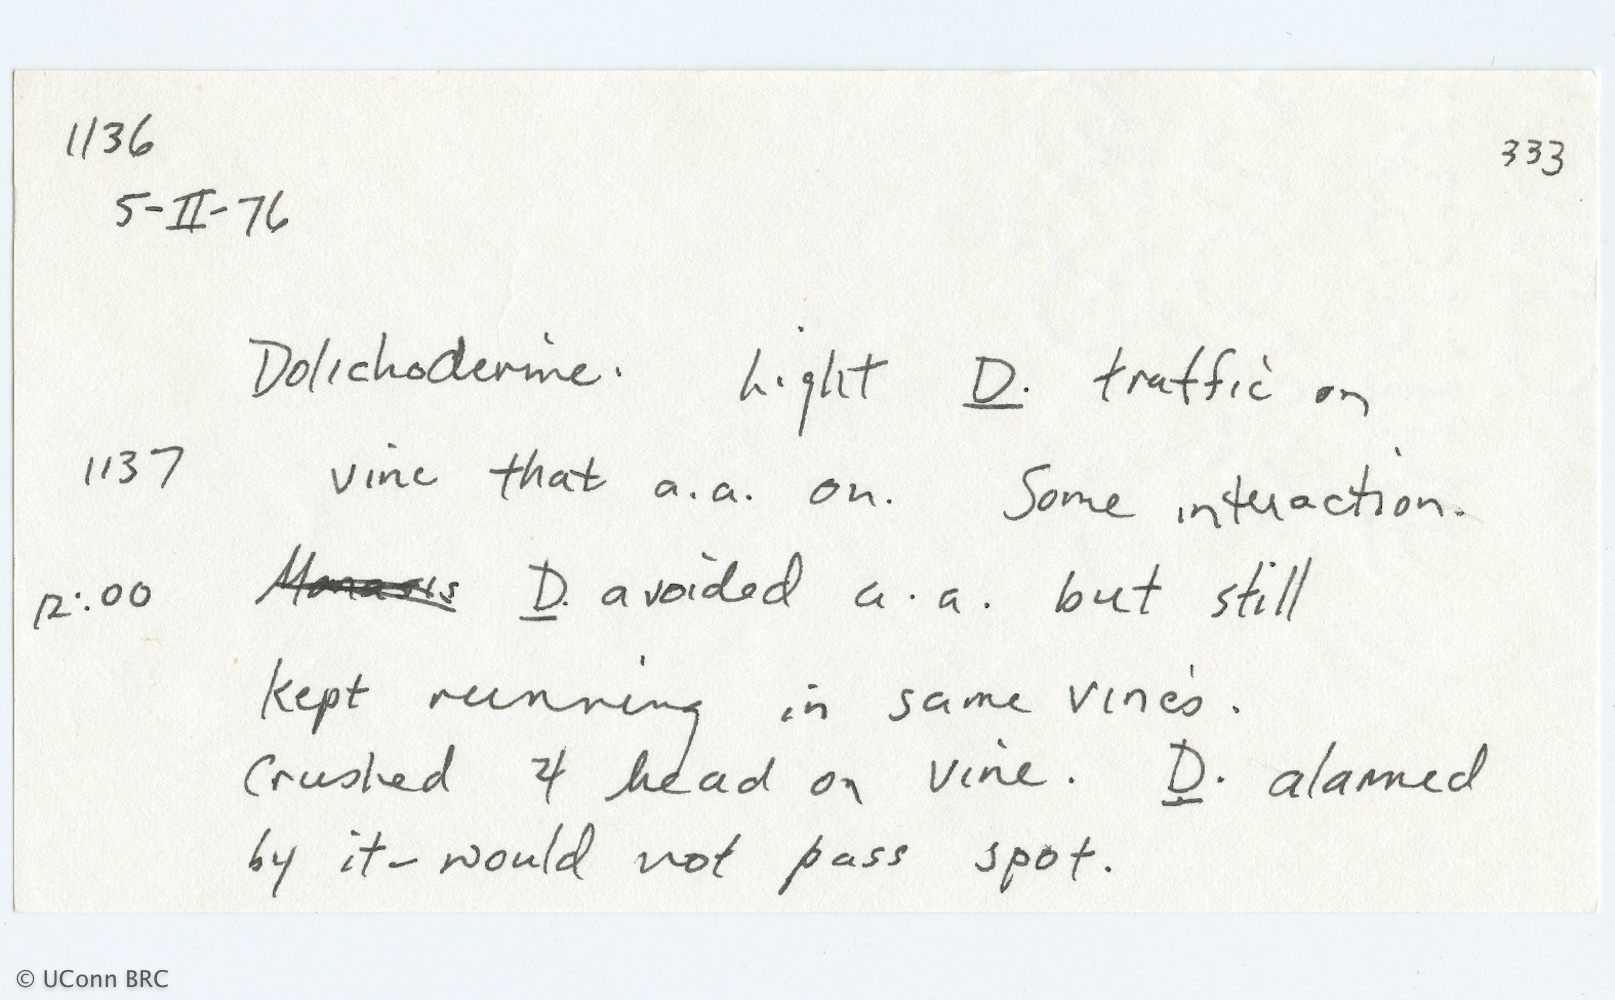 1136
333
5-II-76
Dolichoderine. Light D. traffic on
1137 vine that a.a. on. Some interaction.
12:00 D. avoided a.a. but still
kept running in same vines.
Crushed 4 head on vine. D. alarmed
by it - would not pass spot.
© UConn BRC